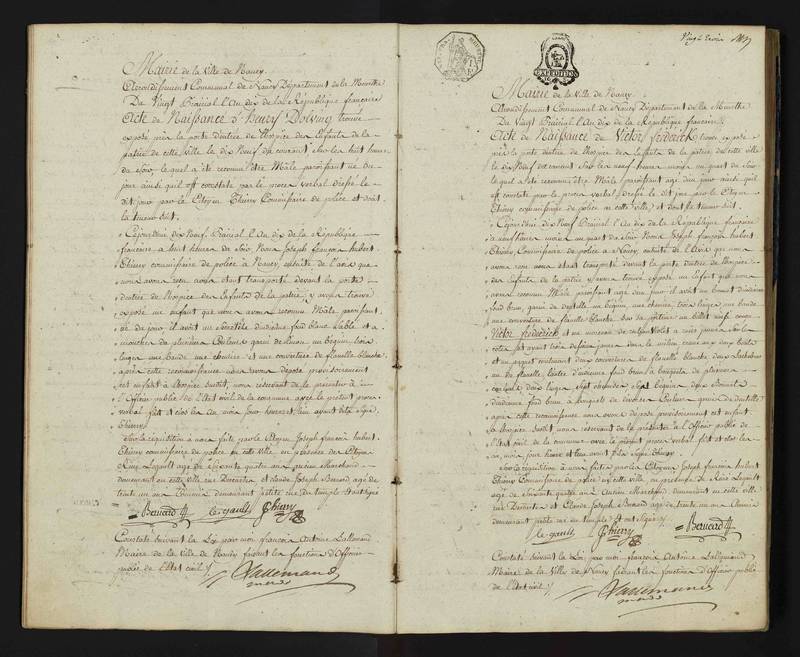 Mairie de la Ville de Nancy.
Arrondissement Communal de Nancy Département de la Meurthe
Du Vingt Prairial l'An dix de la République française
Acte de Naissance d'Henry Dolving trouvé
exposé près la porte d'entrée de l'hospice des Enfants de la
patrie de cette ville le dix Neuf du courant sur les huit heures
du soir, lequel a été reconnu être Mâle paroissant né du
jour ainsi qu'il est constaté par le procès verbal dressé le
dit jour par le Citoyen Thiery Commissaire de police et dont
la teneur suit.
Cejourd'hui dix Neuf Prairial l'An dix de la République
française à huit heures du soir Nous Joseph françois hubert
Thiery commissaire de police à Nancy, ensuite de l'avis que
nous avons reçu nous étant transporté devant la porte
d'entrée de l'hospice des Enfants de la patrie, y avons trouvé
exposé un enfant que nous avons reconnu Mâle paroissant
né du jour, il avoit un
mouches de plusieurs Couleurs garni de linon un béguin, trois
langes une bande une chemise et une couverture de flanelle blanche
après cette reconnoissance nous avons déposé provisoirement
cet enfant à l'hospice susdit, nous réservant de le présenter à
l'Officier public de l'état civil de la commune avec le présent procès
verbal fait et clos les an mois jour heure et lieu avant dits signé
Thiery.
Sur la réquisition à nous faite par le Citoyen Joseph françois hubert
Thiery commissaire de police en cette ville en présence des Citoyens
Legault agé de soixante quatre ans ancien Marchand
demeurant en cette ville rue Descartes et Claude Joseph Bernard agé de
trente un ans Commis demeurant petite rue du temple et ont signé
Bernard le gault Thiery
Constaté suivant la Loi par moi françois Antoine Lallemand
Maire de la ville de Nancy faisant les fonctions d'Officier
public de l'Etat civil
Lallemand
maire
Vingt
Mairie de la Ville de Nancy.
Arrondissement Communal de Nancy Département de la Meurthe
Du Vingt Prairial l'An dix de la République française
Acte de Naissance de Victor frédérick trouvé exposé
près la porte d'entrée de l'hospice des Enfants de la patrie de cette ville
le dix Neuf du courant sur les neuf heures moins un quart du soir
lequel a été reconnu Mâle paroissant agé d'un jour ainsi qu'il
est constaté par le procès verbal dressé le dit jour par le Citoyen
Thiery commissaire de police en cette ville et dont la teneur suit.
Cejourd'hui dix Neuf Prairial l'An dix de la République française
à neuf heures moins un quart du soir Nous Joseph françois hubert
Thiery Commissaire de police à Nancy, ensuite de l'Avis que nous
avons reçu nous étant transporté devant la porte d'entrée de l'hospice
des Enfants de la patrie y avons trouvé exposé un Enfant que nous
avons reconnu Mâle paroissant agé d'un jour il avoit un bonnet d'indienne
fond brun, garni de dentelle un béguin, une chemise, trois langes une bande
une couverture de flanelle blanche, sur sa poitrine un billet
Victor frédérick et un morceau de ruban violet
un de flanelle, l'autre d'indienne fond brun à bouquets de plusieurs
couleurs deux langes, Sept chemises, Sept béguins, deux bonnets
d'indienne fond brun à bouquets de diverses Couleurs garnis de dentelle
après cette reconnoissance nous avons déposé provisoirement cet enfant
à l'hospice susdit nous réservant de le présenter à l'Officier public de
l'état civil de la commune avec le présent procès verbal fait et clos les
an, mois jour heure et lieu avant dits Signé Thiery.
Sur la réquisition à nous faite par le Citoyen Joseph françois hubert
Thiery Commissaire de police en cette ville, en présence de Legault
agé de soixante quatre ans Ancien Marchand demeurant en cette ville
rue Descartes et Claude Joseph Bernard agé de trente un ans Commis
demeurant petite rue du temple et ont signé
le gault Thiery Bernard
Constaté suivant la Loi par moi françois Antoine Lallemand
Maire de la Ville de Nancy faisant les fonctions d'Officier public
de l'Etat civil
Lallemand
maire